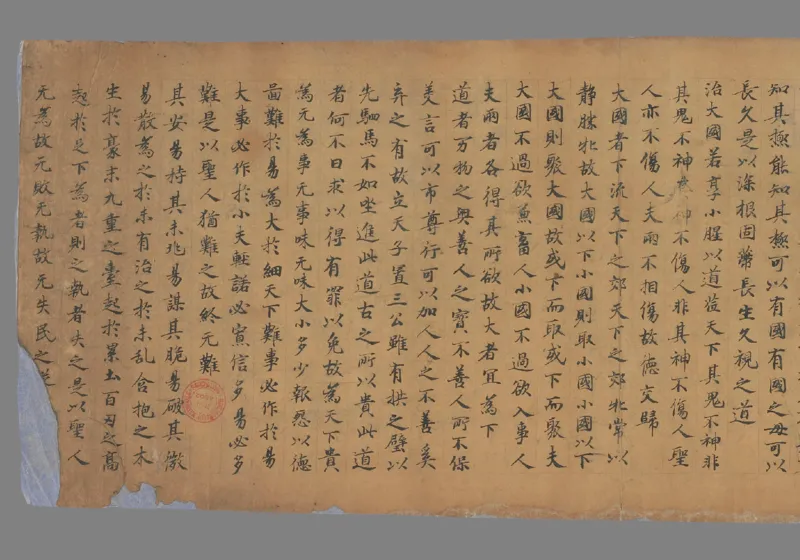 知其極能知其極可以有國有國之母可以
長久是以深根固蔕長生久視之道
治大國若享小腥以道莅天下其鬼不神非
其鬼不神其神不傷人非其神不傷人聖
人亦不傷人夫兩不相傷故德交歸
大國者下流天下之郊天下之郊牝常以
静勝牝故大國以下小國則取小國小國以下
大國則聚大國故或下而取或下而聚夫
大國不過欲魚畜人小國不過欲入事人
夫兩者各得其所欲故大者宜為下
道者万物之奥善人之寶不善人所不保
美言可以市尊行可以加人人之不善奚
弃之有故立天子置三公雖有拱之璧以
先駟馬不如坐進此道古之所以貴此道
者何不日求以得有罪以免故為天下貴
為无為事无事味无味大小多少報怨以德
啚難於易為大於細天下難事必作於易
大事必作於小夫輕諾必寡信多易必多
難是以聖人猶難之故終无難
其安易持其未兆易謀其脆易破其微
易散為之於未有治之於未乱合抱之木
生於豪末九重之臺起於累土百刃之高
起於足下為者則之執者失之是以聖人
无為故无敗无執故无失民之